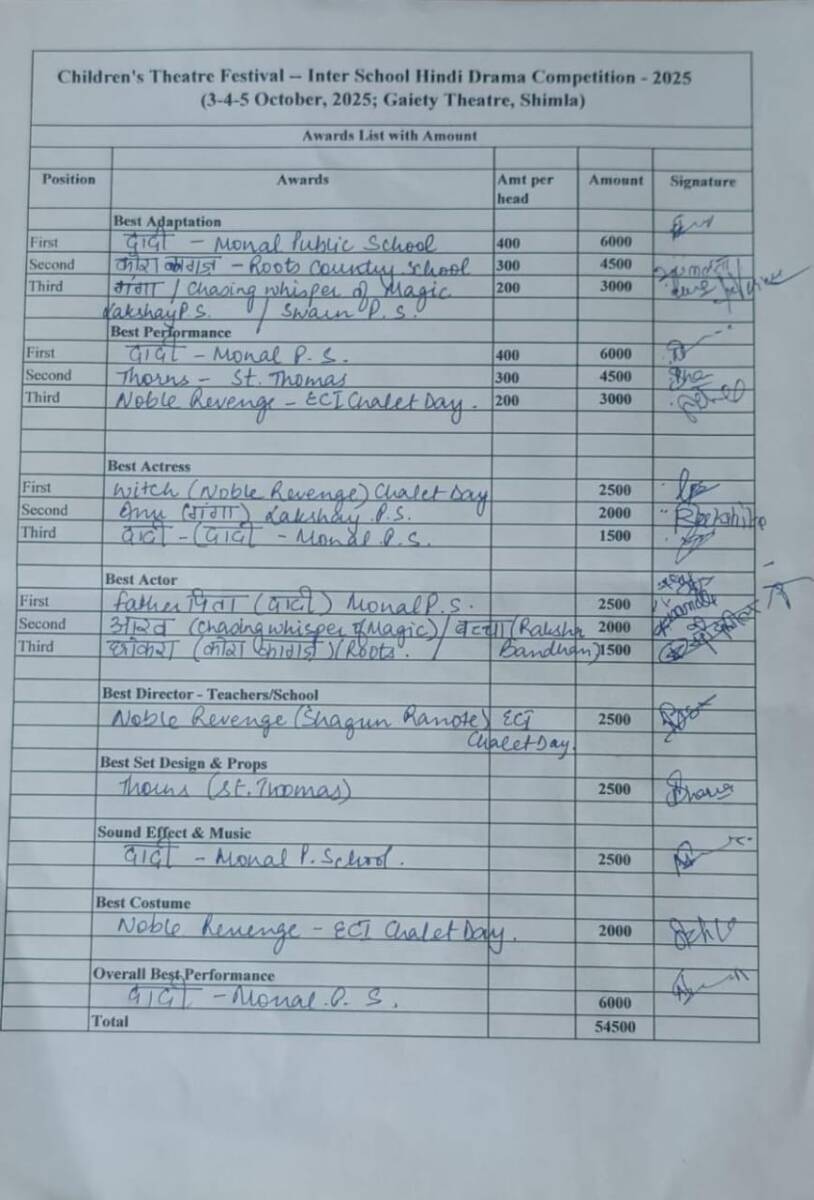 Children's Theatre Festival – Inter School Hindi Drama Competition - 2025
(3-4-5 October, 2025; Gaiety Theatre, Shimla)
Awards List with Amount
Position Awards Amt per head Amount Signature
Best Adaptation
First दादी - Monal Public School 400 6000
Second कोरा कागज़ - Roots Country School 300 4500
Third गंगा / Chasing whisper of Magic 200 3000
Lakshay P.S. / Swarn P.S.
Best Performance
First दादी - Monal P.S. 400 6000
Second Thorns - St. Thomas 300 4500
Third Noble Revenge - ECI Chalet Day. 200 3000
Best Actress
First Witch (Noble Revenge) Chalet Day 2500
Second (गंगा) Lakshay P.S. 2000
Third दादी - (दादी - Monal P.S. 1500
Best Actor
First father पिता (दादी) Monal P.S. 2500
Second (Chasing whisper of Magic) / (Raksha 2000
Third (कोरा कागज़) (Roots. / Bandhan) 1500
Best Director - Teachers/School
Noble Revenge (Shagun Ranote) ECI 2500
Chalet Day.
Best Set Design & Props
Thorns (St. Thomas) 2500
Sound Effect & Music
दादी - Monal P. School. 2500
Best Costume
Noble Revenge - ECI Chalet Day. 2000
Overall Best Performance
दादी - Monal P. S. 6000
Total 54500